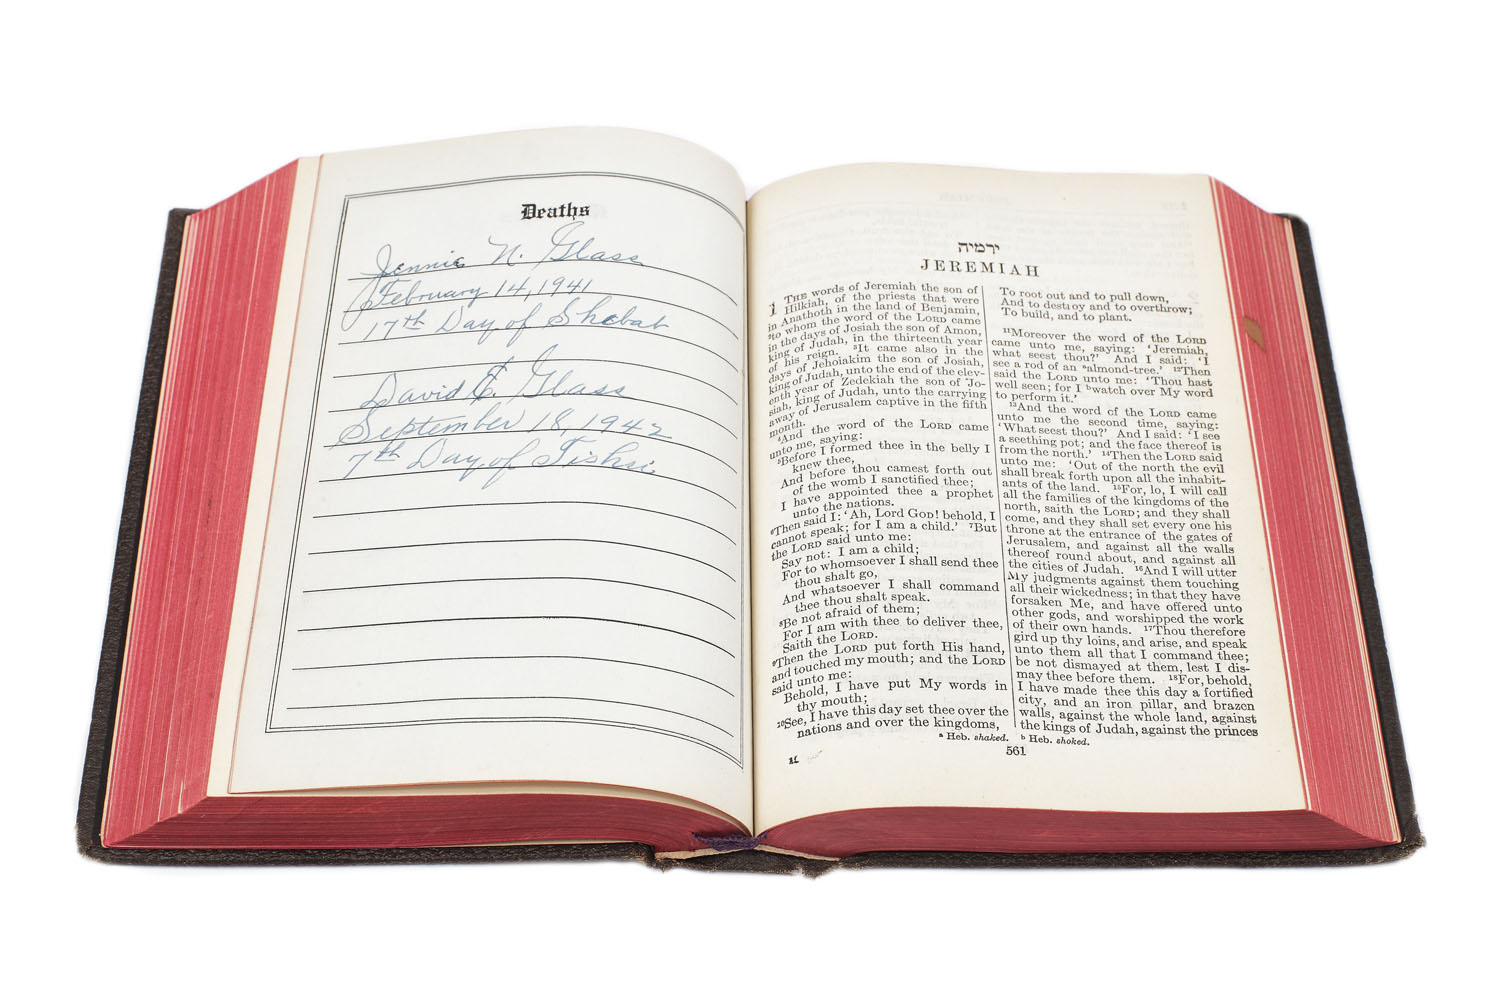 Deaths
Jennie N. Glass
February 14, 1941
17th Day of Shebat
David E. Glass
September 18, 1942
7th Day of Tishri
ירמיה
JEREMIAH
1 THE words of Jeremiah the son of
Hilkiah, of the priests that were
in Anathoth in the land of Benjamin,
²to whom the word of the LORD came
in the days of Josiah the son of Amon,
king of Judah, in the thirteenth year
of his reign. ³It came also in the
days of Jehoiakim the son of Josiah,
king of Judah, unto the end of the elev-
enth year of Zedekiah the son of Jo-
siah, king of Judah, unto the carrying
away of Jerusalem captive in the fifth
month.
⁴And the word of the LORD came
unto me, saying:
⁵Before I formed thee in the belly I
knew thee,
And before thou camest forth out
of the womb I sanctified thee;
I have appointed thee a prophet
unto the nations.
⁶Then said I: ‘Ah, Lord GOD! behold, I
cannot speak; for I am a child.’ ⁷But
the LORD said unto me:
Say not: I am a child;
For to whomsoever I shall send thee
thou shalt go,
And whatsoever I shall command
thee thou shalt speak.
⁸Be not afraid of them;
For I am with thee to deliver thee,
Saith the LORD.
⁹Then the LORD put forth His hand,
and touched my mouth; and the LORD
said unto me:
Behold, I have put My words in
thy mouth;
¹⁰See, I have this day set thee over the
nations and over the kingdoms,
To root out and to pull down,
And to destroy and to overthrow;
To build, and to plant.
¹¹Moreover the word of the LORD
came unto me, saying: ‘Jeremiah,
what seest thou?’ And I said: ‘I
see a rod of an ᵃalmond-tree.’ ¹²Then
said the LORD unto me: ‘Thou hast
well seen; for I ᵇwatch over My word
to perform it.’
¹³And the word of the LORD came
unto me the second time, saying:
‘What seest thou?’ And I said: ‘I see
a seething pot; and the face thereof is
from the north.’ ¹⁴Then the LORD said
unto me: ‘Out of the north the evil
shall break forth upon all the inhabit-
ants of the land. ¹⁵For, lo, I will call
all the families of the kingdoms of the
north, saith the LORD; and they shall
come, and they shall set every one his
throne at the entrance of the gates of
Jerusalem, and against all the walls
thereof round about, and against all
the cities of Judah. ¹⁶And I will utter
My judgments against them touching
all their wickedness; in that they have
forsaken Me, and have offered unto
other gods, and worshipped the work
of their own hands. ¹⁷Thou therefore
gird up thy loins, and arise, and speak
unto them all that I command thee;
be not dismayed at them, lest I dis-
may thee before them. ¹⁸For, behold,
I have made thee this day a fortified
city, and an iron pillar, and brazen
walls, against the whole land, against
the kings of Judah, against the princes
ᵃ Heb. shaked. ᵇ Heb. shoked.
561